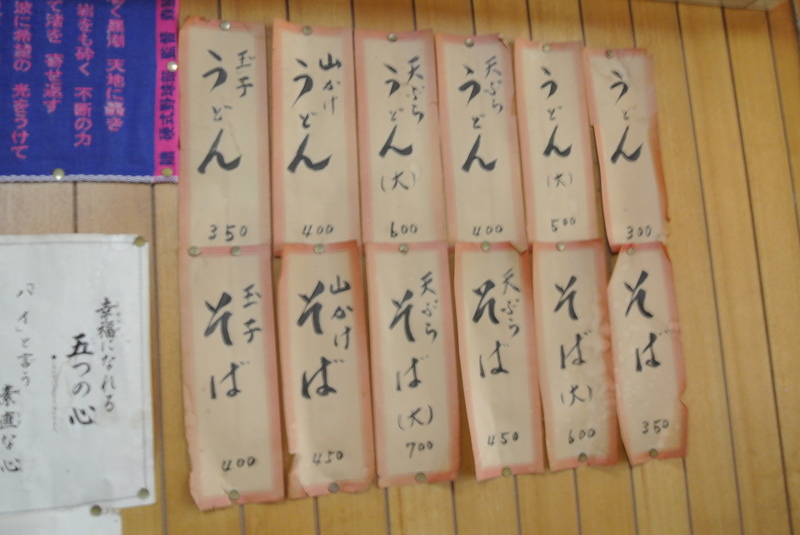 うどん
300
うどん
(大)
500
天ぷら
うどん
400
天ぷら
うどん
(大)
600
山かけ
うどん
400
玉子
うどん
350
そば
350
そば
(大)
600
天ぷら
そば
450
天ぷら
そば
(大)
700
山かけ
そば
450
玉子
そば
400
天地に轟き
岩をも砕く 不断の力
寄せ返す
波に希望の 光をうけて
幸福になれる
五つの心
「ハイ」と言う
素直な心